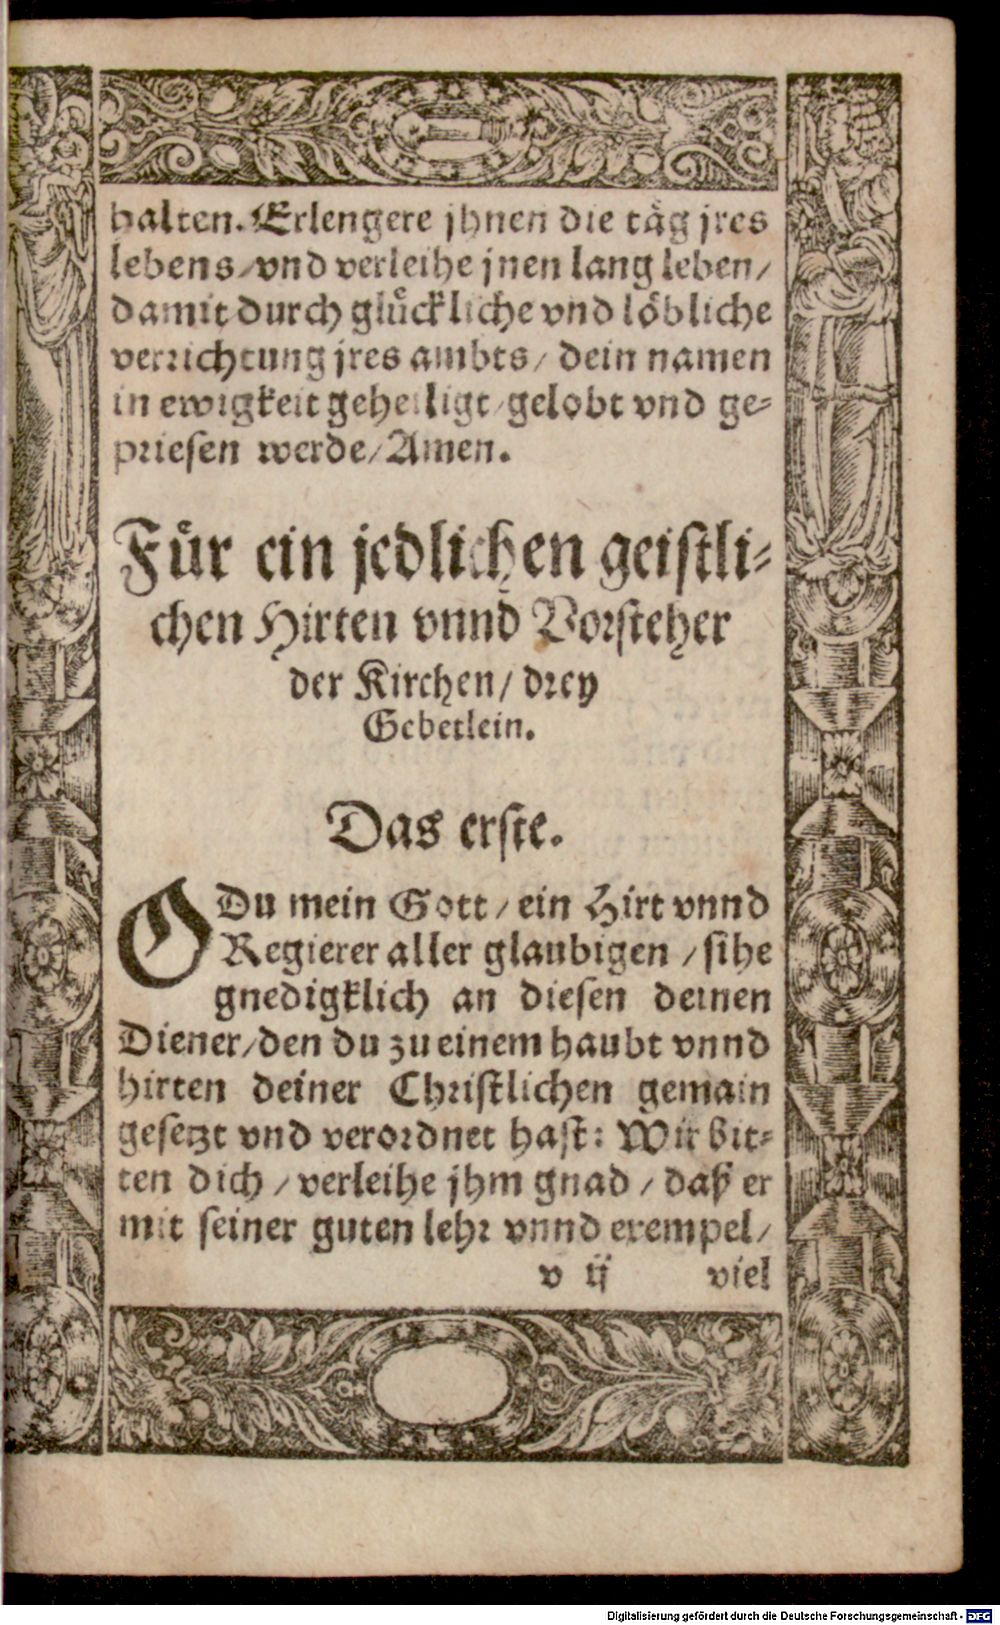 halten. Erlengere jhnen die täg jres
lebens/vnd verleihe jnen lang leben/
damit durch glůckliche vnd löbliche
verrichtung jres ambts/ dein namen
in ewigkeit geheiligt/gelobt vnd ge-
priesen werde/Amen.
Fůr ein jedlichen geistli-
chen Hirten vnnd Vorsteher
der Kirchen/ drey
Gebetlein.
Das erste.
O Du mein Gott/ein Hirt vnnd
Regierer aller glaubigen/sihe
gnedigklich an diesen deinen
Diener/den du zu einem haubt vnnd
hirten deiner Christlichen gemain
gesetzt vnd verordnet hast: Wir bit-
ten dich/verleihe jhm gnad/daß er
mit seiner guten lehr vnnd exempel/
v ij viel
Digitalisierung gefördert durch die Deutsche Forschungsgemeinschaft - DFG